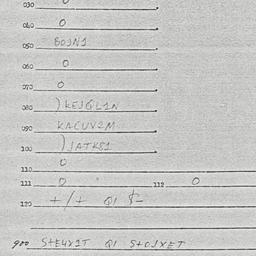 030 0
040 0
050 BOJN1
060 0
070 0
080 )KEJQL1N
090 KACUV2M
100 )JATK81
110 0
111 0 112 0
120 +/+ QI $-
900 S+E4Y1T QI S+OJXET